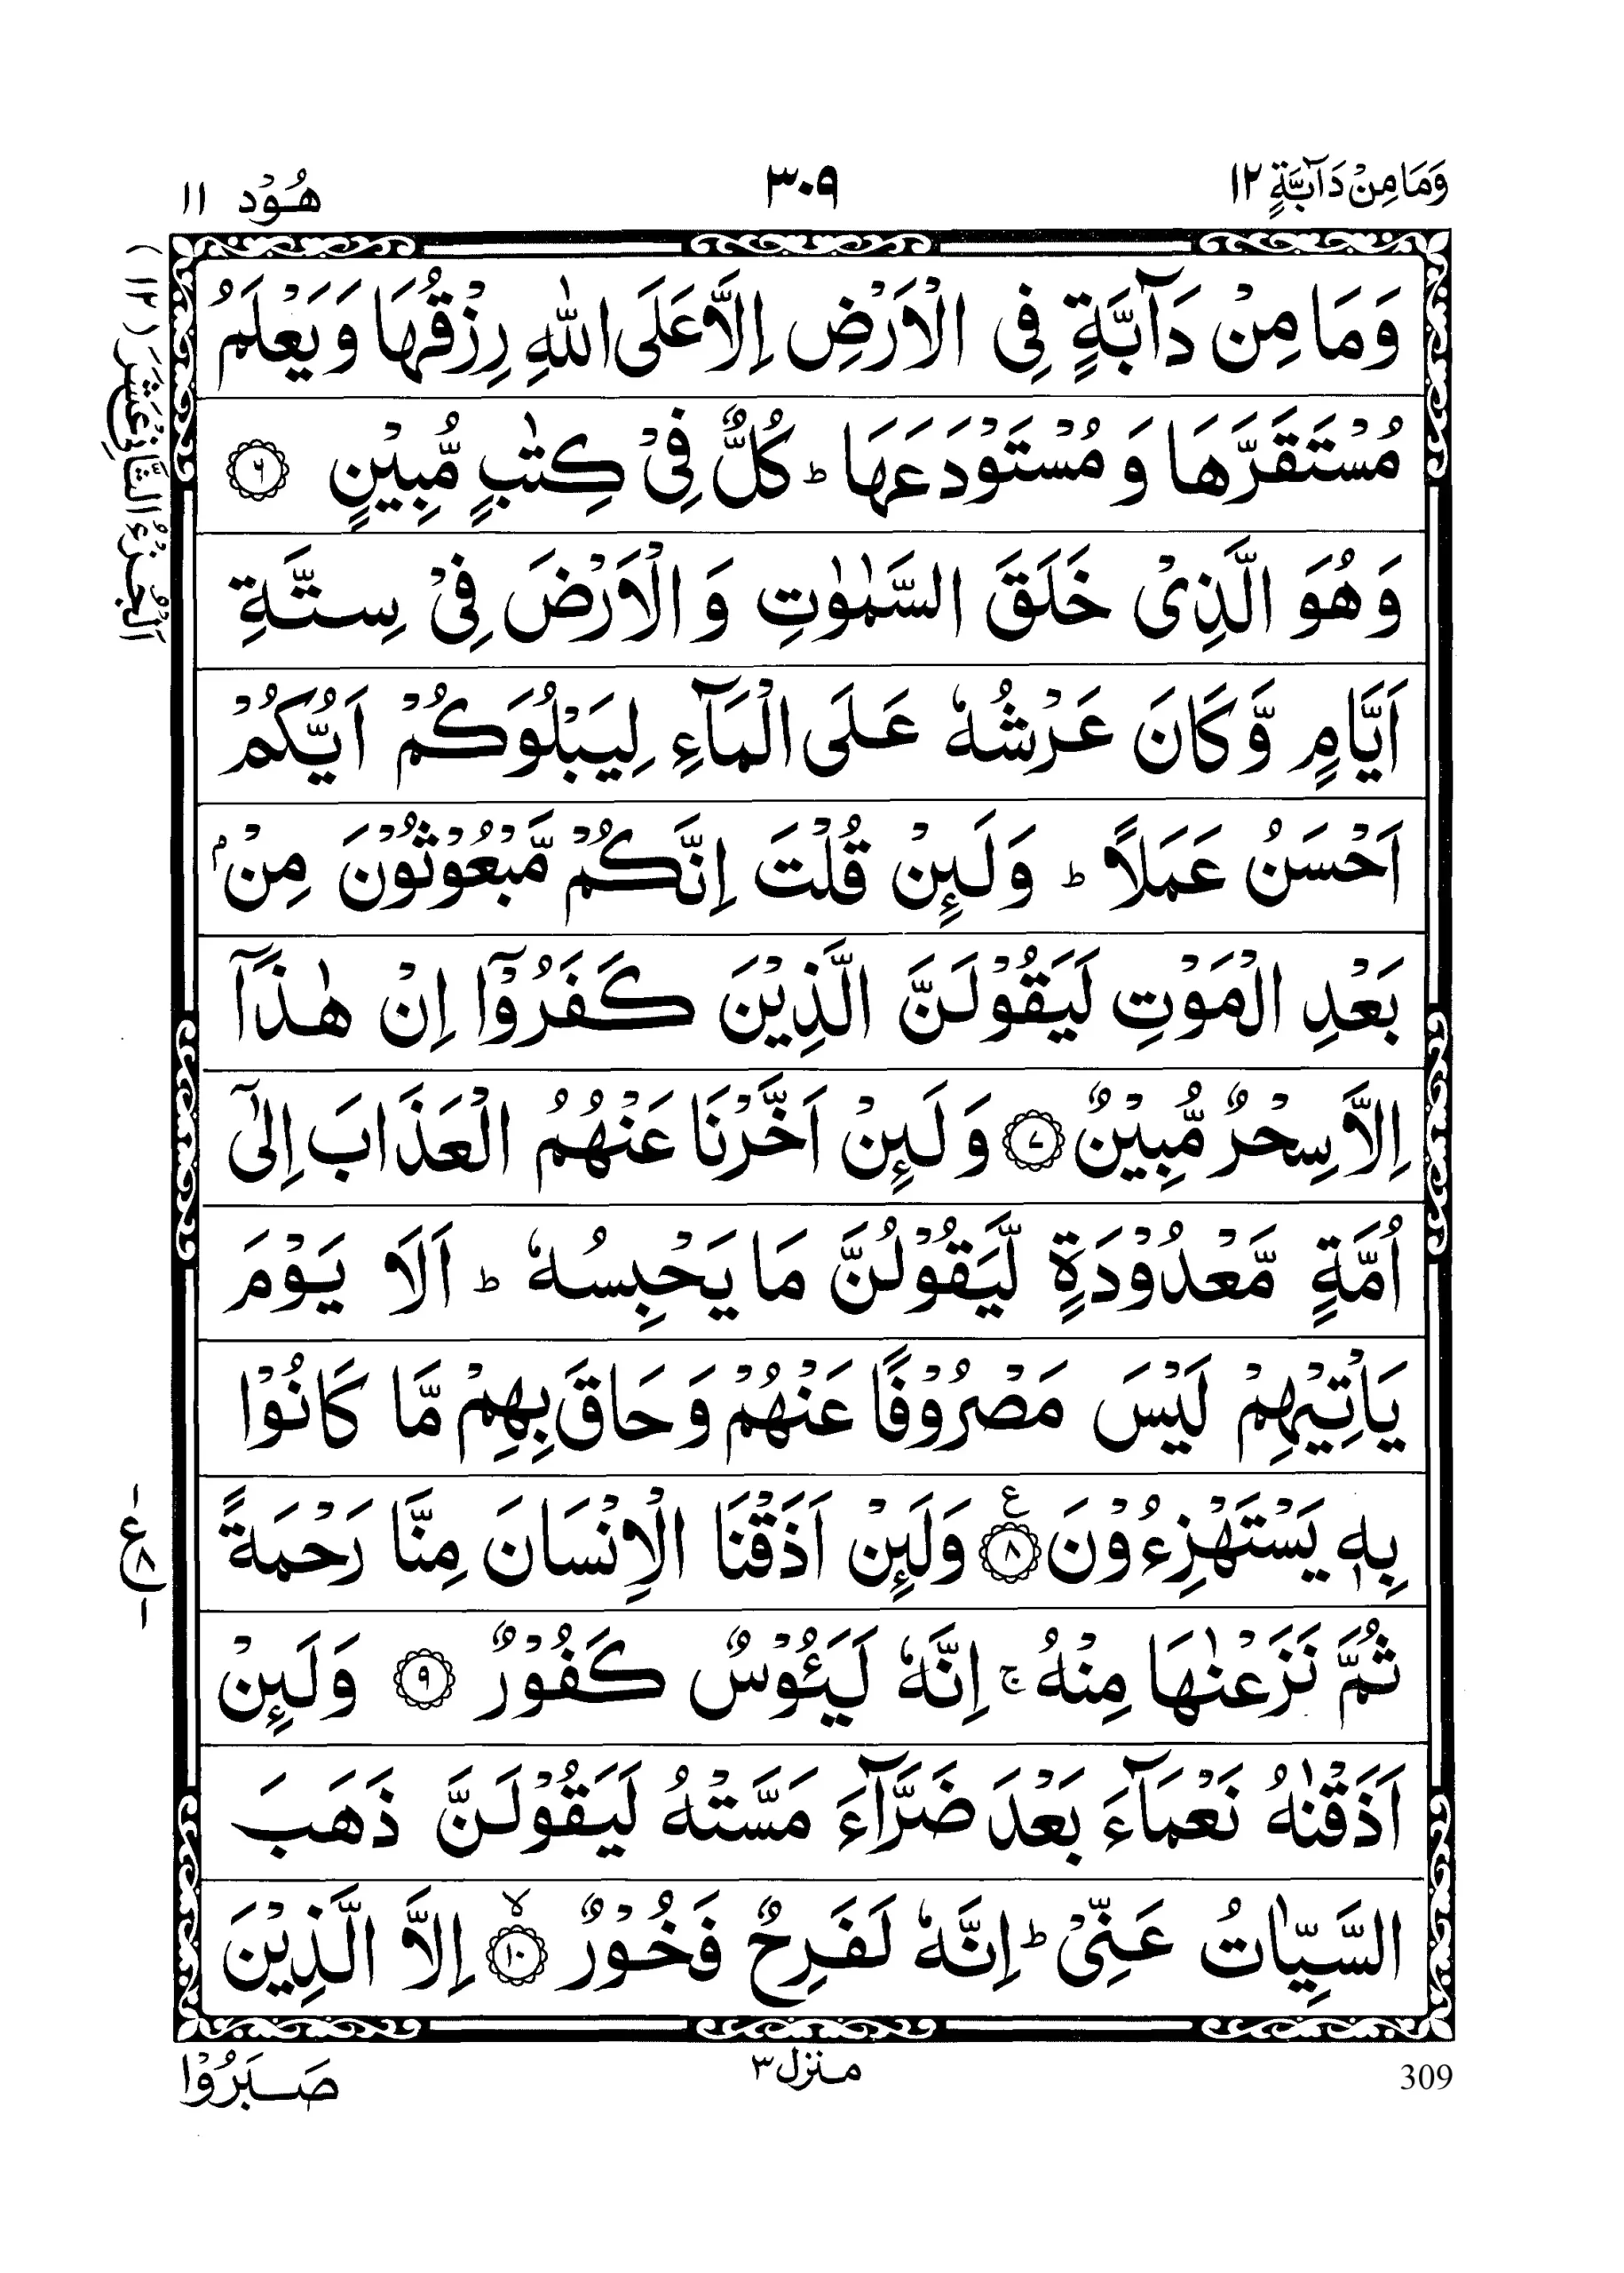 وَمَا مِنْ دَآبَّةٍ ١٢
٣٠٩
هُوْد ١١
اَلْجُزْءُ الثَّانِیْ عَشَرَ (١٢)
وَمَا مِنْ دَآبَّةٍ فِی الْاَرْضِ اِلَّا عَلَی اللّٰهِ رِزْقُهَا وَيَعْلَمُ
مُسْتَقَرَّهَا وَ مُسْتَوْدَعَهَا ؕ كُلٌّ فِیْ كِتٰبٍ مُّبِيْنٍ ﴿٦﴾
وَهُوَ الَّذِیْ خَلَقَ السَّمٰوٰتِ وَ الْاَرْضَ فِیْ سِتَّةِ
اَيَّامٍ وَّكَانَ عَرْشُهٗ عَلَی الْمَآءِ لِيَبْلُوَكُمْ اَيُّكُمْ
اَحْسَنُ عَمَلًا ؕ وَلَئِنْ قُلْتَ اِنَّكُمْ مَّبْعُوْثُوْنَ مِنْۢ
بَعْدِ الْمَوْتِ لَيَقُوْلَنَّ الَّذِيْنَ كَفَرُوْۤا اِنْ هٰذَاۤ
اِلَّا سِحْرٌ مُّبِيْنٌ ﴿٧﴾ وَلَئِنْ اَخَّرْنَا عَنْهُمُ الْعَذَابَ اِلٰۤی
اُمَّةٍ مَّعْدُوْدَةٍ لَّيَقُوْلُنَّ مَا يَحْبِسُهٗ ؕ اَلَا يَوْمَ
يَاْتِيْهِمْ لَيْسَ مَصْرُوْفًا عَنْهُمْ وَحَاقَ بِهِمْ مَّا كَانُوْا
بِهٖ يَسْتَهْزِءُوْنَ ﴿٨﴾ ع وَلَئِنْ اَذَقْنَا الْاِنْسَانَ مِنَّا رَحْمَةً
ع
ثُمَّ نَزَعْنٰهَا مِنْهُ ۚ اِنَّهٗ لَيَئُوْسٌ كَفُوْرٌ ﴿٩﴾ وَلَئِنْ
اَذَقْنٰهُ نَعْمَآءَ بَعْدَ ضَرَّآءَ مَسَّتْهُ لَيَقُوْلَنَّ ذَهَبَ
السَّيِّاٰتُ عَنِّیْ ؕ اِنَّهٗ لَفَرِحٌ فَخُوْرٌ ﴿١٠﴾ ۙ اِلَّا الَّذِيْنَ
309
منزل ٣
صَبَرُوْا